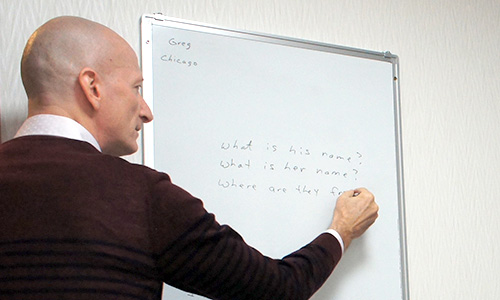 Greg
Chicago
what is his name?
What is her name?
Where are they